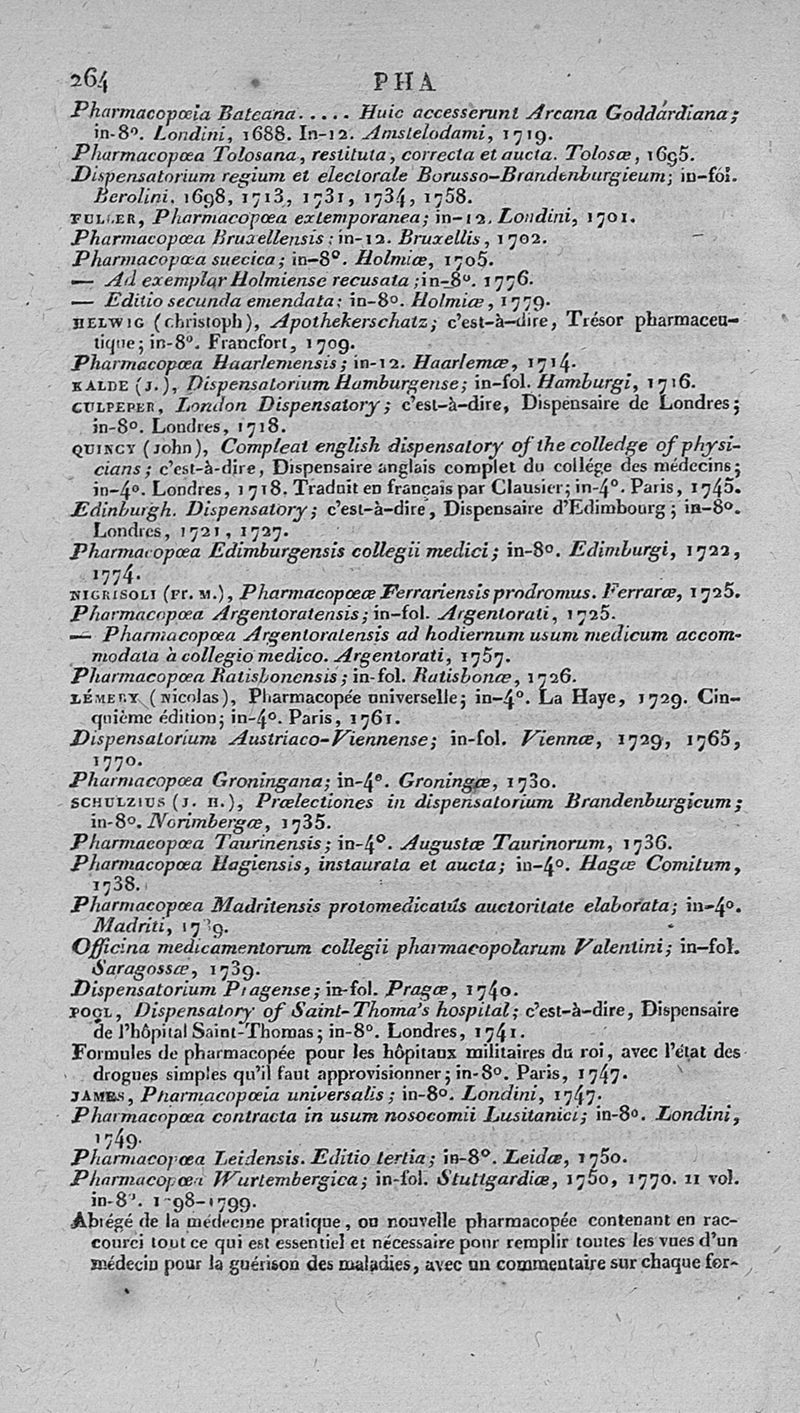 264 PHA
Pharmacopœia Bateana..... Huic accesserunt Arcana Goddardiana;
in-8°. Londini, 1688. In-12. Amstelodami, 1719.
Pharmacopœa Tolosana, restituta, correcta et aucta. Tolosæ, 1695.
Dispensatorium regium et electorale Borusso-Brandenburgieum; in-fol.
Berolini. 1698, 1713, 1731, 1734, 1758.
FULLER, Pharmacopœa extemporanea; in-12. Londini, 1701.
Pharmacopœa Bruxellensis; in-12. Bruxellis, 1702.
Pharmacopœa suecica; in-8°. Holmiæ, 1705.
— Ad exemplar Holmiense recusata; in-8°. 1776.
— Editio secunda emendata; in-8°. Holmiæ, 1779.
HELWIG (christoph), Apothekerschatz; c'est-à-dire, Trésor pharmaceu-
tique; in-8°. Francfort, 1709.
Pharmacopœa Haarlemensis; in-12. Haarlemæ, 1714.
KALDE (J.), Dispensatorium Hamburgense; in-fol. Hamburgi, 1716.
CULPEPER, London Dispensatory; c'est-à-dire, Dispensaire de Londres;
in-8°. Londres, 1718.
QUINCY (John), Compleat english dispensatory of the colledge of physi-
cians; c'est-à-dire, Dispensaire anglais complet du collége des médecins;
in-4°. Londres, 1718. Traduit en français par Clausier; in-4°. Paris, 1745.
Edinburgh. Dispensatory; c'est-à-dire, Dispensaire d'Edimbourg; in-8°.
Londres, 1721, 1727.
Pharmacopœa Edimburgensis collegii medici; in-8°. Edimburgi, 1722,
1774.
NIGRISOLI (Fr. M.), Pharmacopœæ Ferrariensis prodromus. Ferraræ, 1725.
Pharmacopœa Argentoratensis; in-fol. Argentorati, 1725.
— Pharmacopœa Argentoratensis ad hodiernum usum medicum accom-
modata à collegio medico. Argentorati, 1757.
Pharmacopœa Ratisbonensis; in-fol. Ratisbonæ, 1726.
LÉMERY (Nicolas), Pharmacopée universelle; in-4°. La Haye, 1729. Cin-
quième édition; in-4°. Paris, 1761.
Dispensatorium Austriaco-Viennense; in-fol. Viennæ, 1729, 1765,
1770.
Pharmacopœa Groningana; in-4°. Groningæ, 1730.
SCHULZIUS (J. H.), Prælectiones in dispensatorium Brandenburgicum;
in-8°. Norimbergæ, 1735.
Pharmacopœa Taurinensis; in-4°. Augustæ Taurinorum, 1736.
Pharmacopœa Hagiensis, instaurata et aucta; in-4°. Hagæ Comitum,
1738.
Pharmacopœa Madritensis protomedicatûs auctoritate elaborata; in-4°.
Madriti, 1739.
Officina medicamentorum collegii pharmacopolarum Valentini; in-fol.
Saragossæ, 1739.
Dispensatorium Pragense; in-fol. Pragæ, 1740.
POOL, Dispensatory of Saint-Thoma's hospital; c'est-à-dire, Dispensaire
de l'hôpital Saint-Thomas; in-8°. Londres, 1741.
Formules de pharmacopée pour les hôpitaux militaires du roi, avec l'état des
drogues simples qu'il faut approvisionner; in-8°. Paris, 1747.
JAMES, Pharmacopœia universalis; in-8°. Londini, 1747.
Pharmacopœa contracta in usum nosocomii Lusitanici; in-8°. Londini,
1749.
Pharmacopœa Leidensis. Editio tertia; in-8°. Leidæ, 1750.
Pharmacopœa Wurtembergica; in-fol. Stuttgardiæ, 1750, 1770. 11 vol.
in-8°. 1798-1799.
Abrégé de la médecine pratique, ou nouvelle pharmacopée contenant en rac-
courci tout ce qui est essentiel et nécessaire pour remplir toutes les vues d'un
médecin pour la guérison des maladies, avec un commentaire sur chaque for-